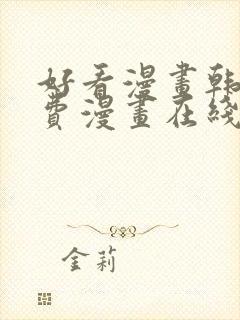 好看漫畫韩
費漫畫在綫
金莉